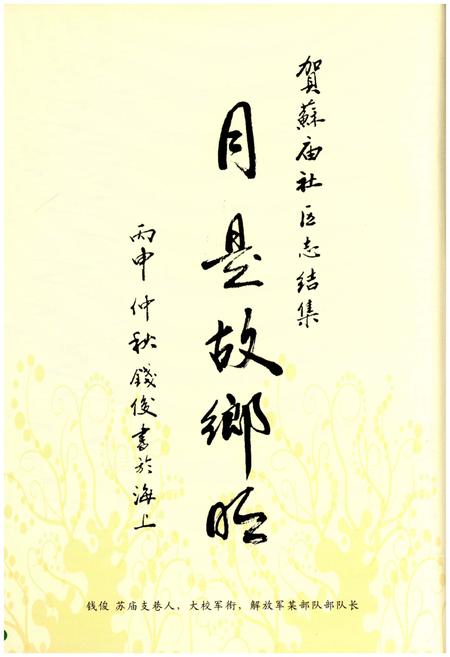 賀蘇庙社区志结集
月是故鄉明
丙申仲秋錢俊書於海上
钱俊 苏庙支巷人，大校军衔，解放军某部队部队长